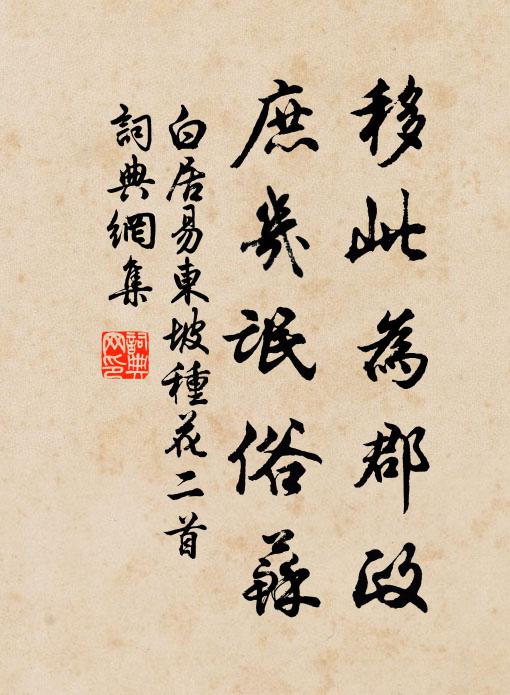 移此為郡政
庶幾氓俗蘇
白居易東坡種花二首
詞典網集
詞典
网印